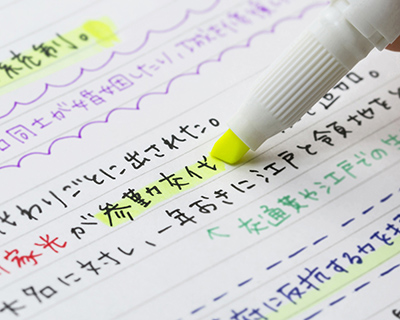 統制。
同士が婚姻したり、
代わりごとに出された。
家光が参勤交代
大名に対し、一年おきに江戸と領地を
交通費や江戸での生
に反抗する力を